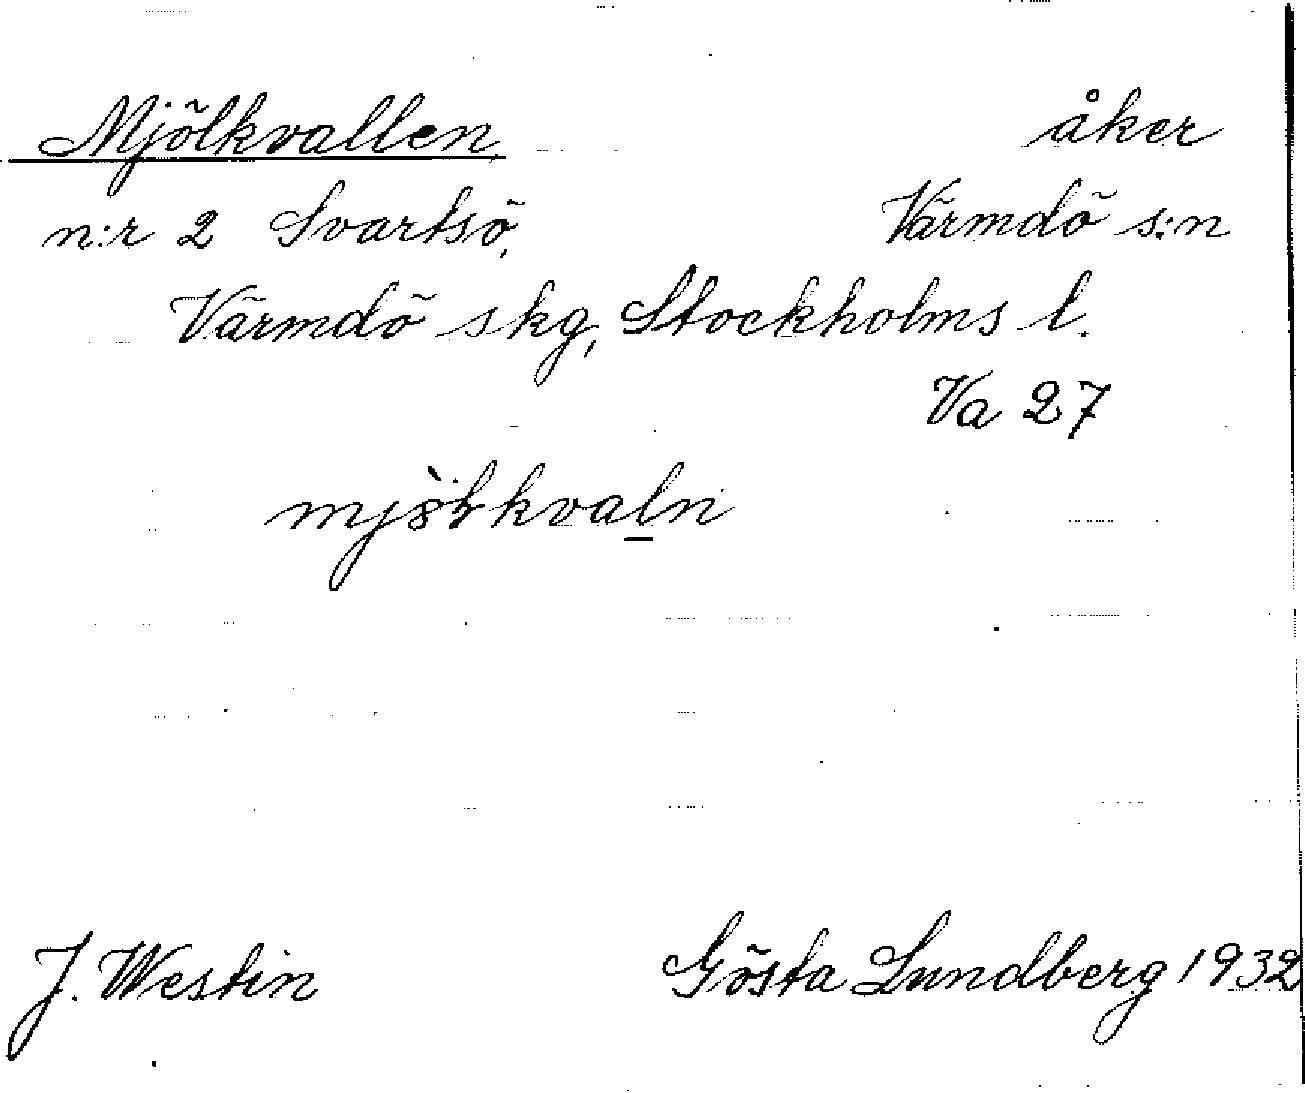 Mjölkvallen åker
n:r 2 Svartsö, Värmdö s:n
Värmdö skg, Stockholms l.
Va 27
J. Westin Gösta Lundberg 1932